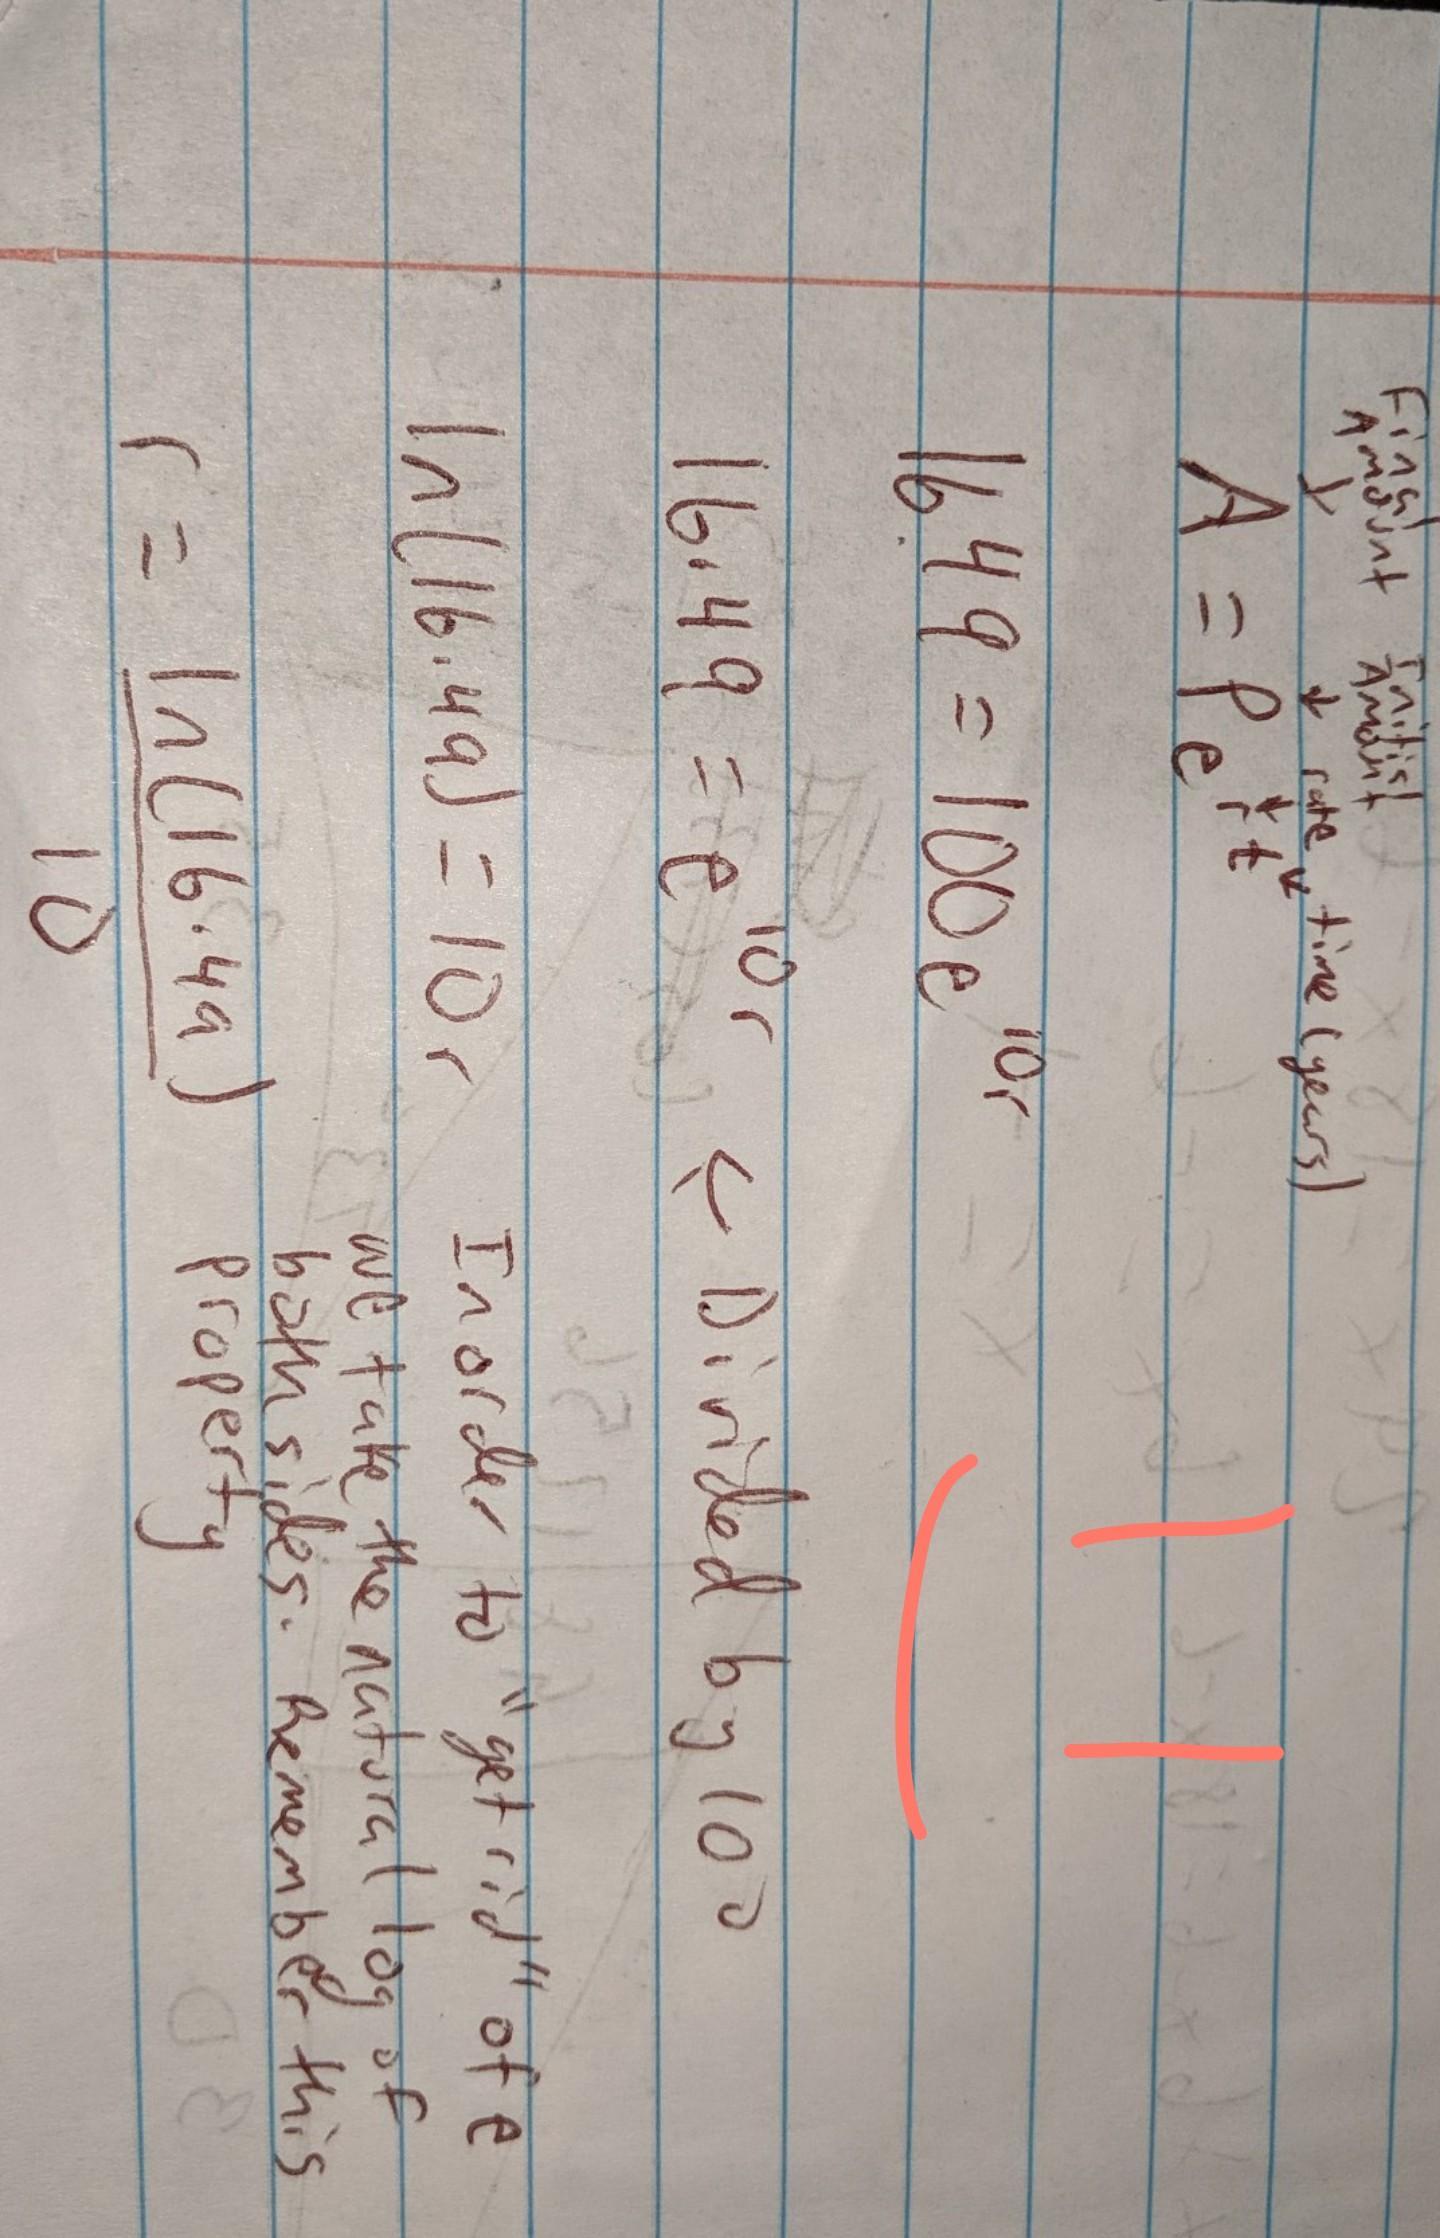 Final Initial
Amount Amount
rate time (years)
A = Pe^rt
1649 = 100e^10r
16.49 = e^10r ← Divided by 100
ln(16.49) = 10r In order to "get rid" of e
we take the natural log of
both sides. Remember this
property
r = ln(16.49)
10